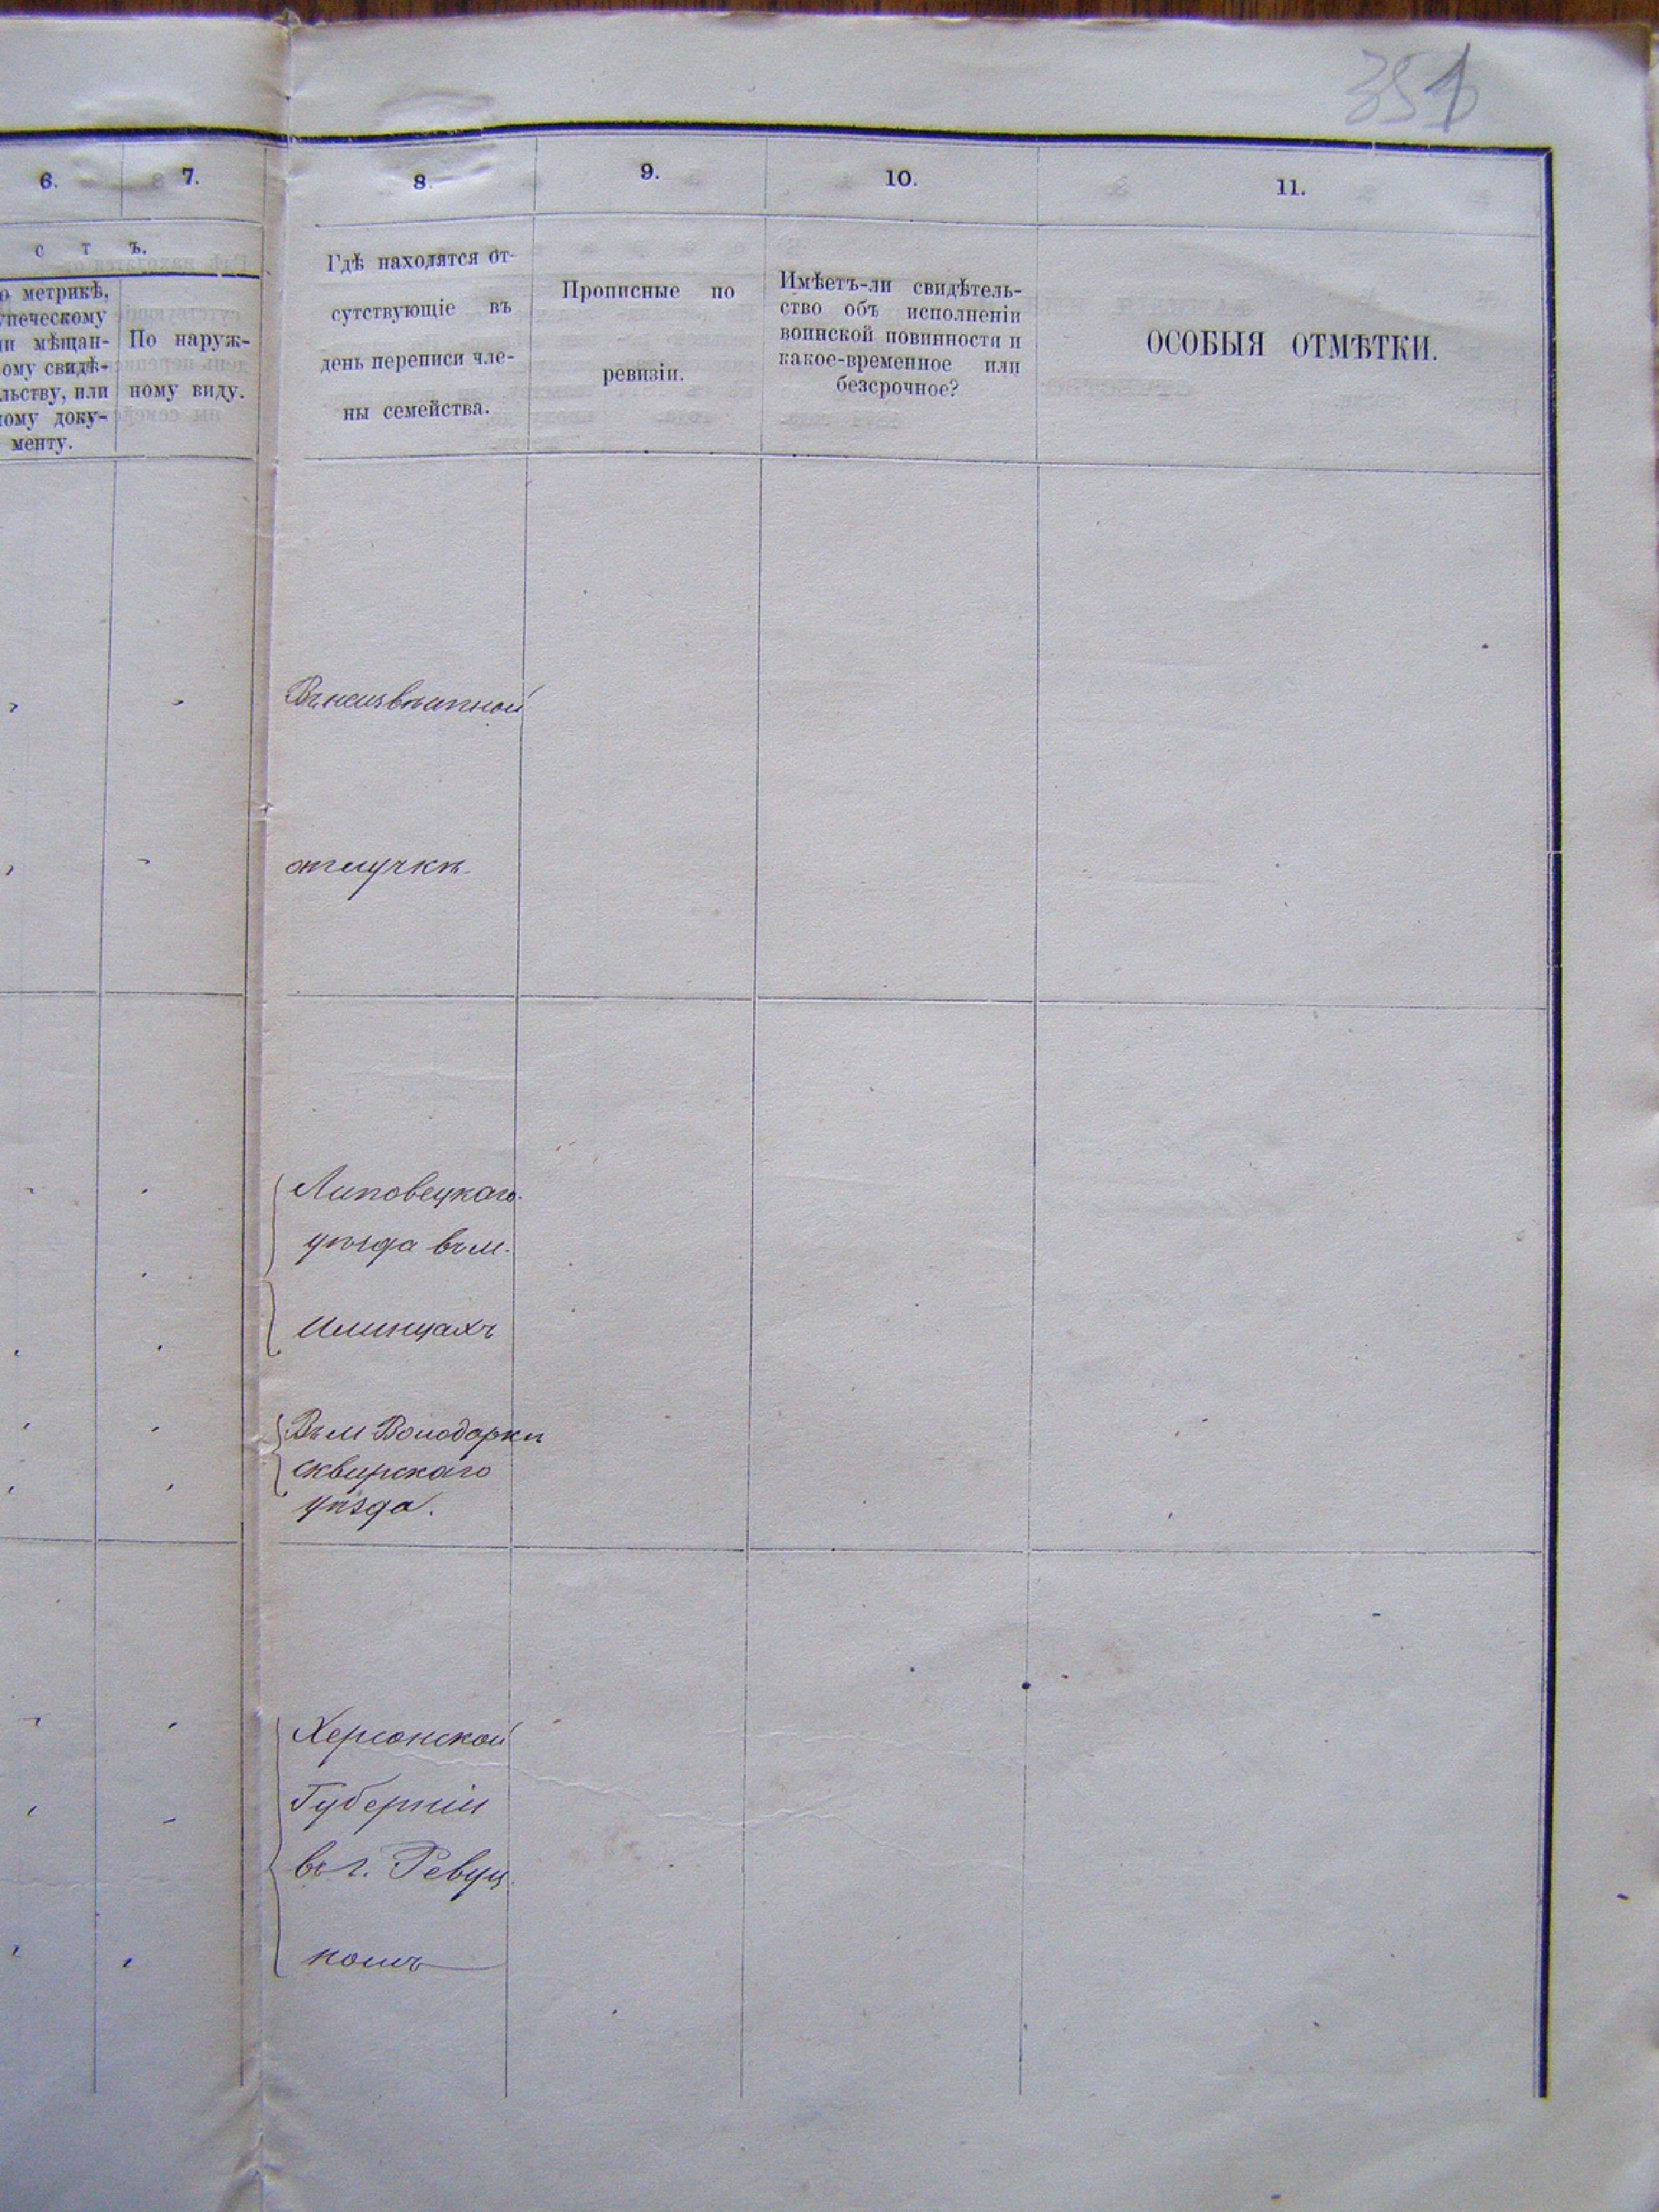 351
6.
7.
8.
9.
10.
11.
с т ъ.
о метрикѣ,
упеческому
ли мѣщан-
ому свидѣ-
льству, или
ному доку-
менту.
По наруж-
ному виду.
Гдѣ находятся от-
сутствующіе въ
день переписи чле-
ны семейства.
Прописные по
ревизіи.
Имѣетъ-ли свидѣтель-
ство объ исполненіи
воинской повинности и
какое-временное или
безсрочное?
ОСОБЫЯ ОТМѢТКИ.
Въ неизвѣстной
отлучкѣ.
Липовецкаго
уѣзда въ м.
Илинцахъ
Въ м Володаркѣ
Сквирскаго
уѣзда.
Херсонской
Губерніи
въ г. Ревуц
комъ